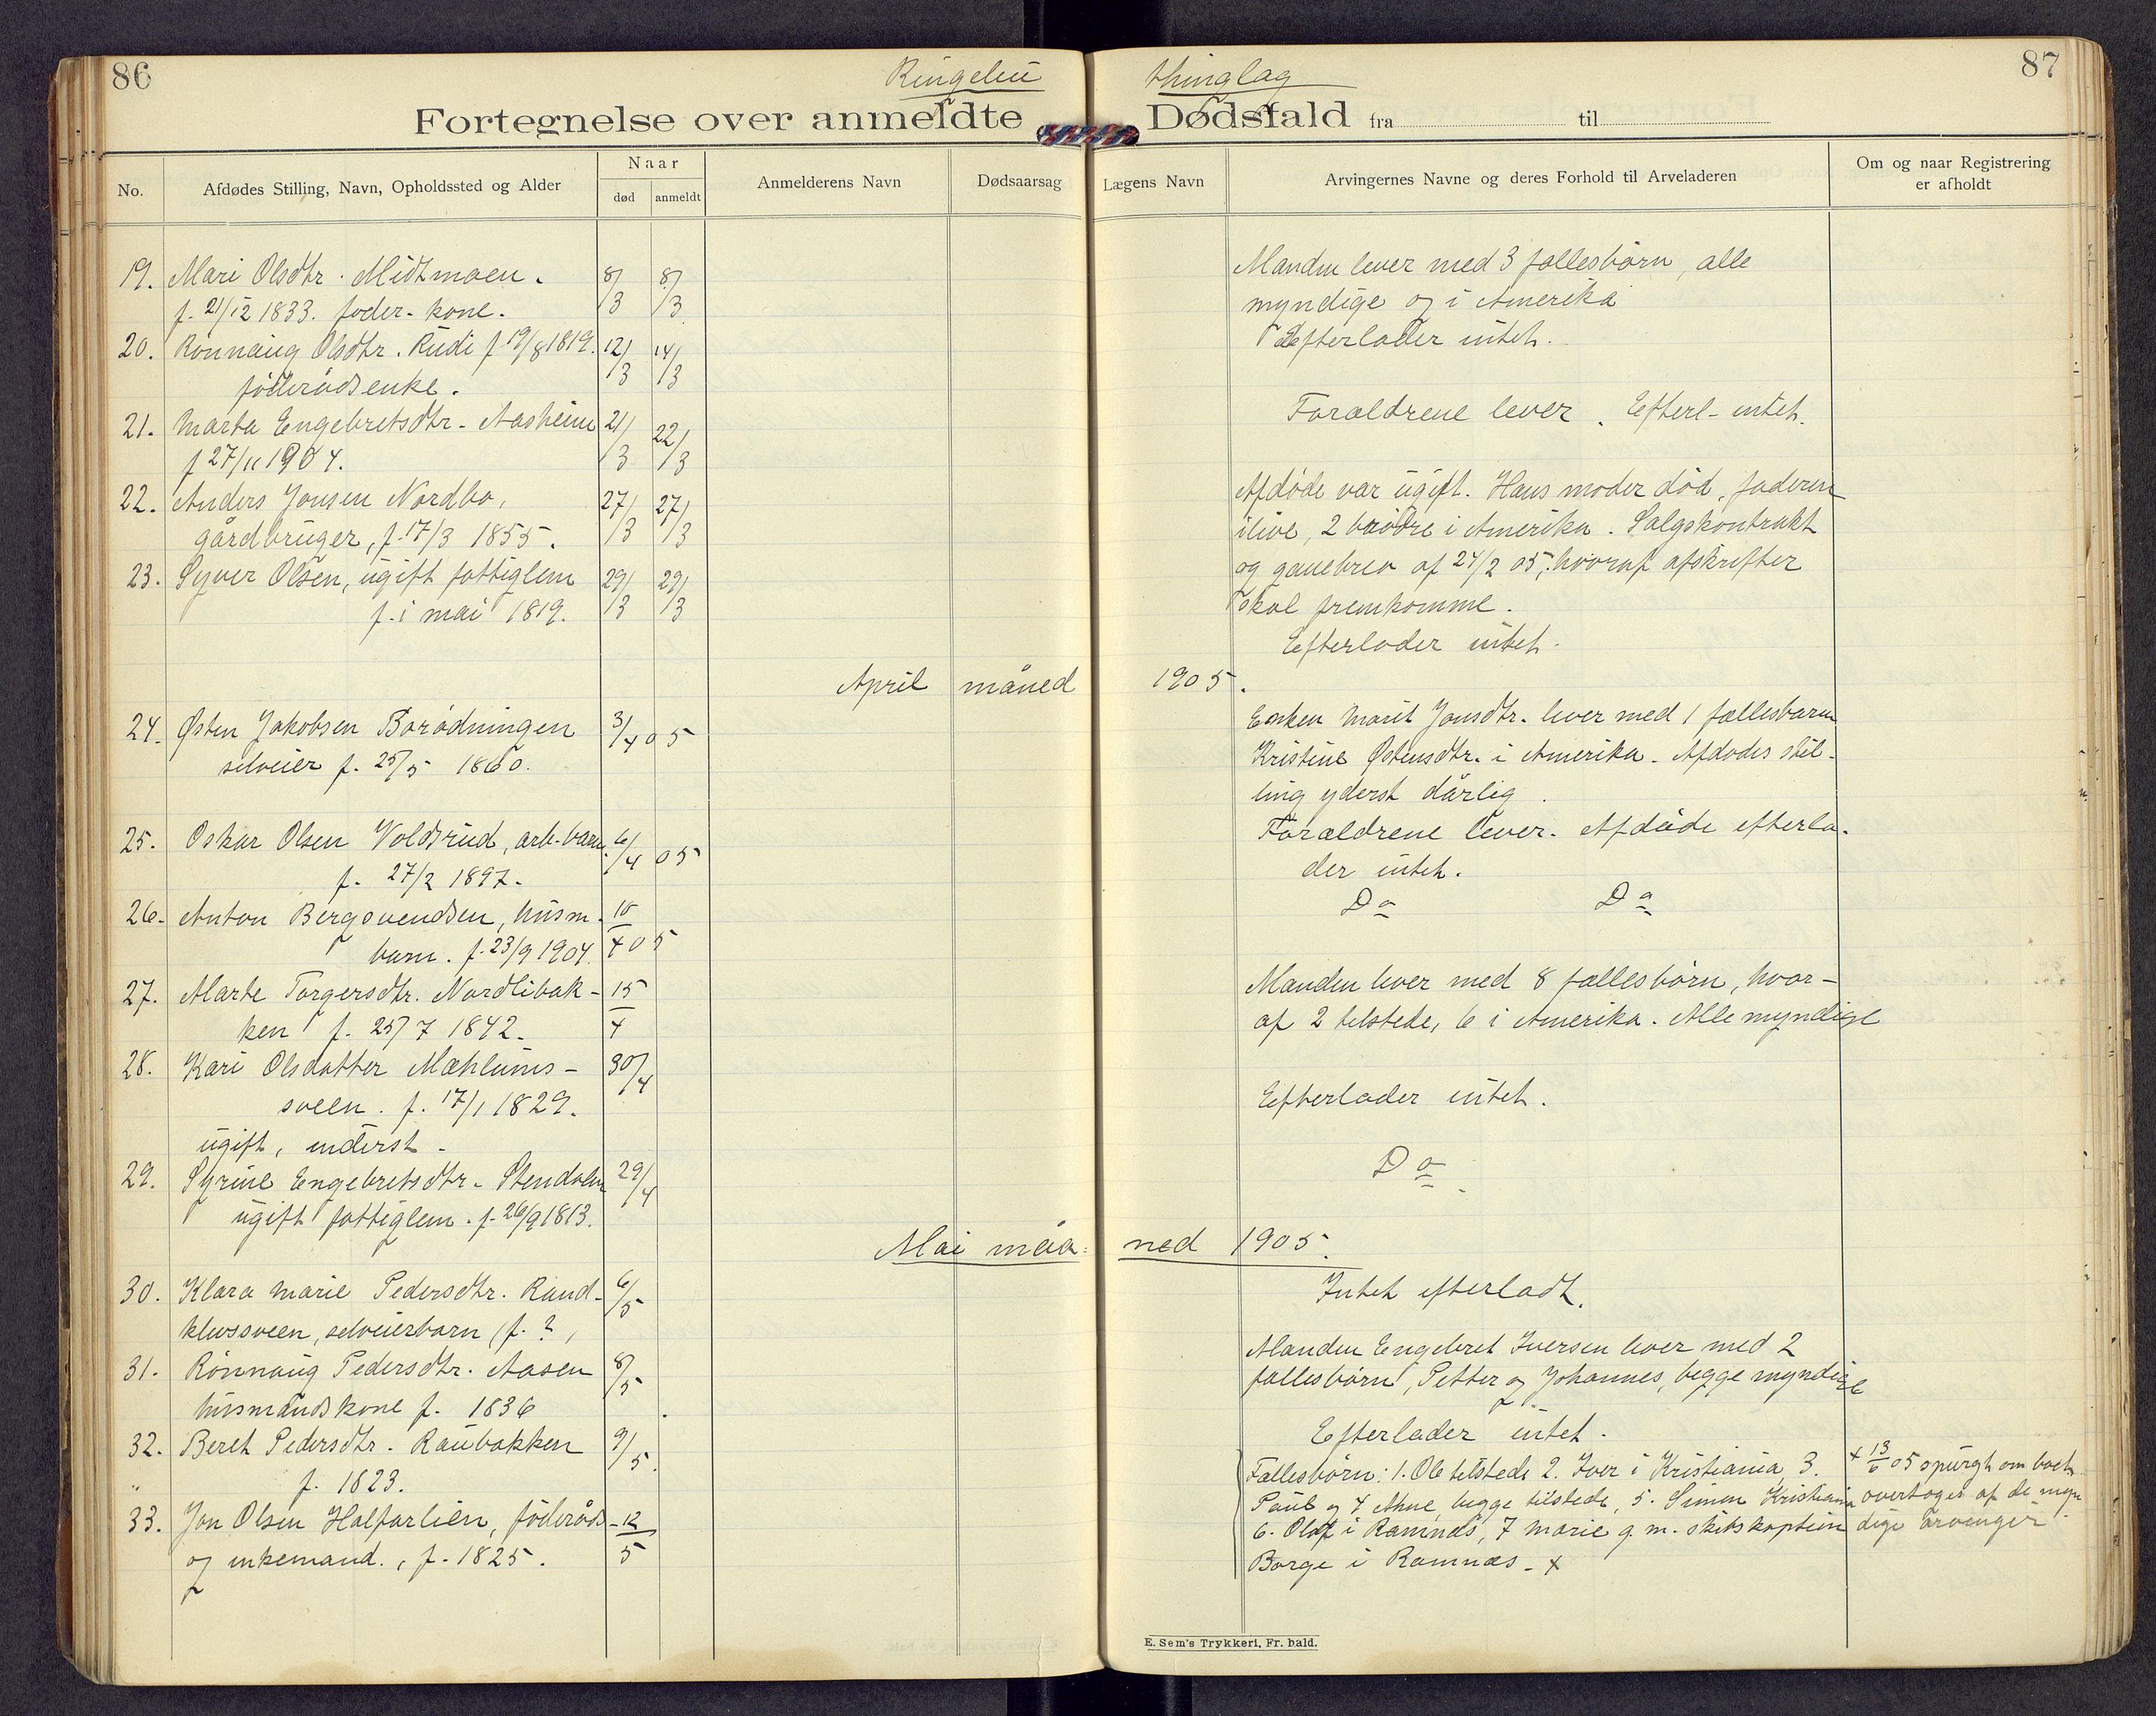 86
Ringebu thinglag
87
Fortegnelse over anmeldte Dødsfald fra til
No.
Afdødes Stilling, Navn, Opholdssted og Alder
Naar
død
anmeldt
Anmelderens Navn
Dødsaarsag
Lægens Navn
Arvingernes Navne og deres Forhold til Arveladeren
Om og naar Registrering
er afholdt
19. Mari Olsdtr. Midtmoen. 8/3 8/3
f. 21/12 1833. foder. kone.
Manden lever med 3 fællesbørn, alle
myndige og i Amerika
20. Rønnaug Olsdtr. Rudi f. 19/8 1819. 12/3 14/3
føderådsenke.
Efterlader intet.
21. Marta Engebretsdtr. Aasheim 21/3 22/3
f 27/11 1904.
Forældrene lever. Efterl. intet.
22. Anders Jonsen Nordbo, 27/3 27/3
gårdbruger, f. 17/3 1855.
Afdøde var ugift. Hans moder død, faderen
ilive, 2 brødre i Amerika. Salgskontrakt
og gavebrev af 24/2 05, hvoraf afskrifter
skal fremkomme.
23. Syver Olsen, ugift fattiglem 29/3 29/3
f. i mai 1819.
Efterlader intet.
April måned 1905.
24. Østen Jakobsen Borådningen 3/4 05
selveier f. 25/5 1860.
Enken Marit Jonsdtr. lever med 1 fællesbarn
Kristine Østensdtr. i Amerika. Afdødes stil-
ling yderst dårlig.
25. Oskar Olsen Voldsrud, arb. barn. 6/4 05
f. 27/2 1897.
Forældrene lever. Afdøde efterla-
der intet.
26. Anton Bergsvendsen, husm. 10/4 05
barn. f. 23/9 1904.
Do Do
27. Marte Torgersdtr. Nordlibak- 15/4
ken f. 25/7 1842.
Manden lever med 8 fællesbørn, hvor-
af 2 tilstede, 6 i Amerika. Alle myndige
28. Kari Olsdatter Mæhlums- 30/4
sveen. f. 17/1 1829.
ugift, inderst.
Efterlader intet.
29. Syrine Engebretsdtr. Stendalen 29/4
ugift fattiglem. f. 26/9 1813.
Do
Mai maaned 1905.
30. Klara Marie Pedersdtr. Rand- 6/5
klevsveen, selveierbarn (f. ?,
Intet efterladt.
31. Rønnaug Pedersdtr. Aasen 8/5
husmandskone f. 1836
Manden Engebret Iversen lever med 2
fællesbørn, Petter og Johannes, begge myndige
32. Beret Pedersdtr. Raubakken 9/5.
" f. 1823.
Efterlader intet.
33. Jon Olsen Halfarlien, føderåds- 12/5
og enkemand., f. 1825.
Fællesbørn: 1. Ole tilstede 2. Iver i Kristiania, 3.
Paul og 4 Ahne, begge tilstede, 5. Simen Kristiania
6. Olaf i Ramnæs, 7 Marie g. m. skibskaptein
Borge i Ramnæs. x
x 13/6 05 spurgt om boet
overtages af de myn
dige arvinger
E. Sem's Trykkeri, Fr.hald.